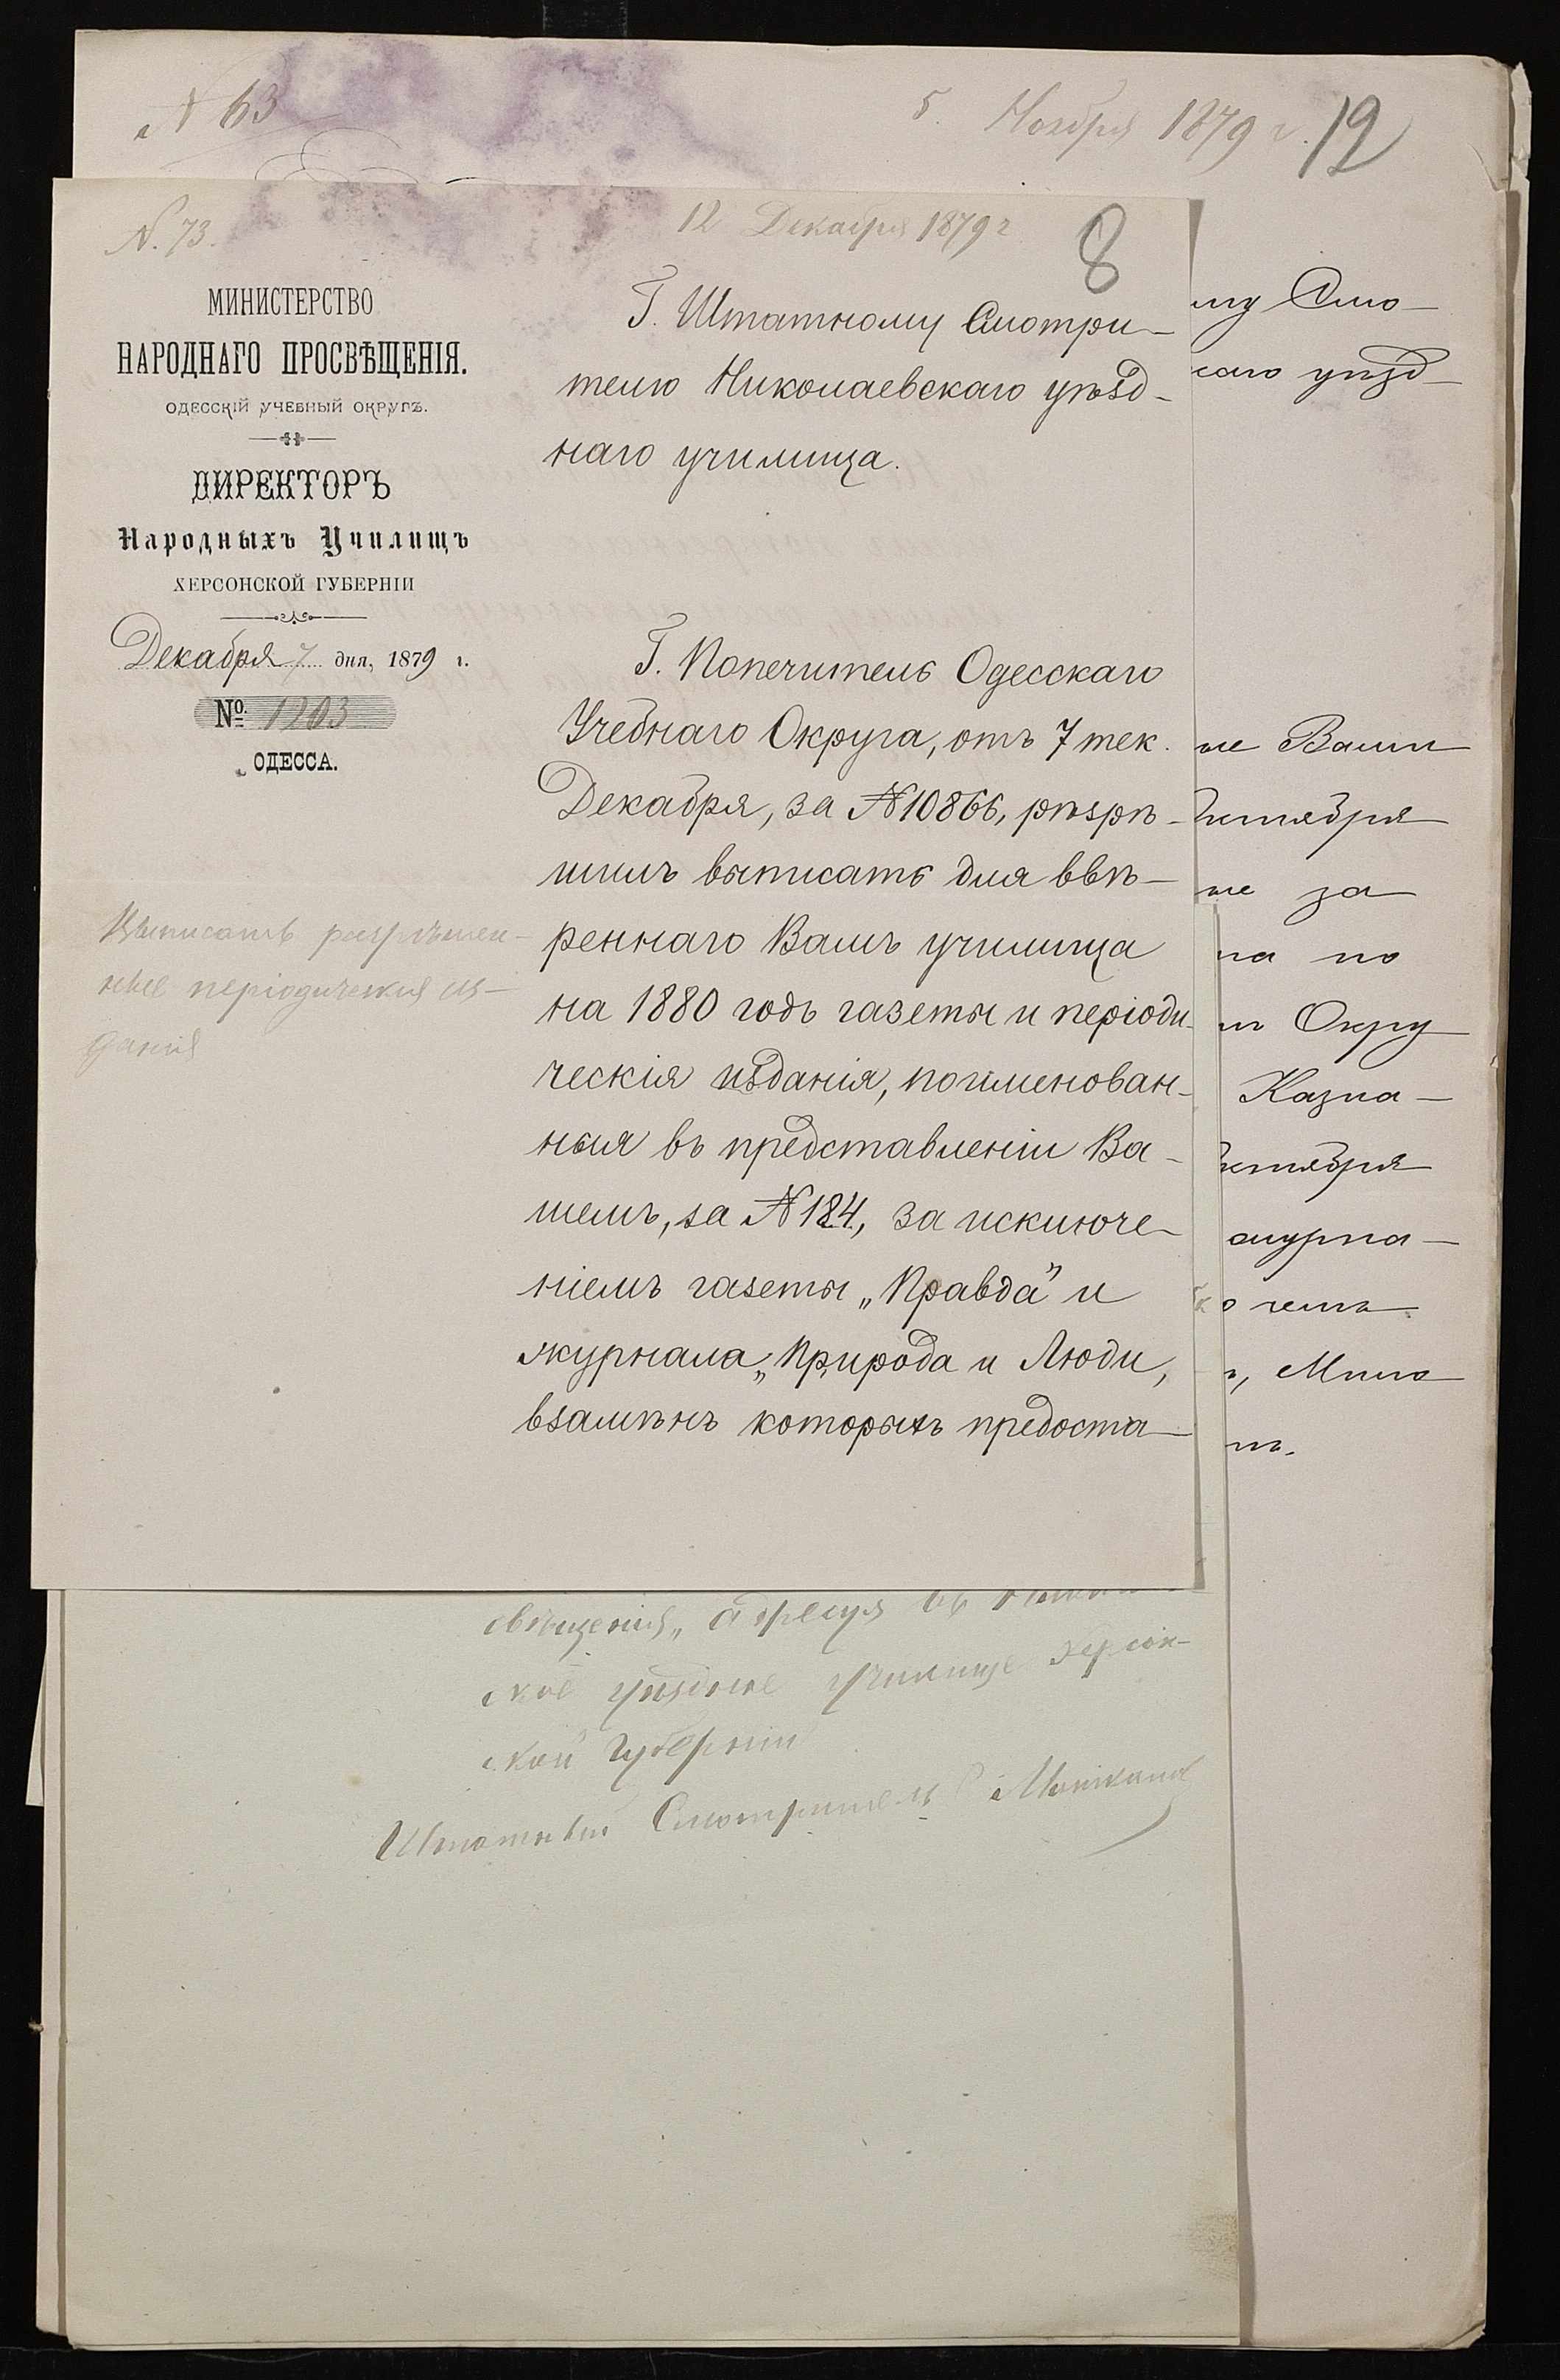 N 63
5. Ноября 1879 г. 12
N. 73.
12 Декабря 1879 г
8
МИНИСТЕРСТВО
НАРОДНАГО ПРОСВѢЩЕНІЯ.
ОДЕССКІЙ УЧЕБНЫЙ ОКРУГЪ.
ДИРЕКТОРЪ
Народныхъ Училищъ
ХЕРСОНСКОЙ ГУБЕРНІИ
Декабря 7 дня, 1879 г.
№ 1203
ОДЕССА.
Выписать разрѣшен-
ные періодическія из-
данія
Г. Штатному Смотри-
телю Николаевскаго уѣзд-
наго училища.
Г. Попечитель Одесскаго
Учебнаго Округа, отъ 7 тек.
Декабря, за № 10866, рѣзрѣ-
шилъ выписать для ввѣ-
реннаго Вамъ училища
на 1880 годъ газеты и періоди-
ческія изданія, поименован-
ныя въ представленіи Ва-
шемъ, за № 184, за исключе-
ніемъ газеты „Правда" и
журнала „Природа и Люди,
взамѣнъ которыхъ предоста-
му Смо-
скаго уѣзд-
ие Ваши
Октября
ие за
на по
мъ Окру
Казна-
Октября
журна-
о чемъ
ъ, Мило
мъ.
свѣщенія„ адресуя въ
ское уѣздное училище Херсон-
ской губерніи
Штатный Смотритель